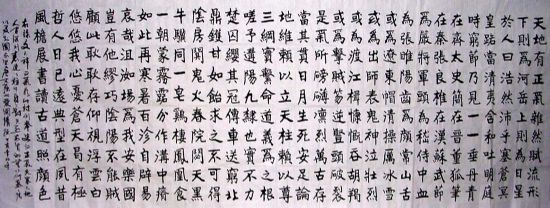 天地有正氣雜然賦流形
下則為河岳上則為日星
於人曰浩然沛乎塞蒼冥
皇路當清夷含和吐明庭
時窮節乃見一一垂丹青
在齊太史簡在晉董狐筆
在秦張良椎在漢蘇武節
為嚴將軍頭為嵇侍中血
為張睢陽齒為顏常山舌
或為遼東帽清操厲冰雪
或為出師表鬼神泣壯烈
或為渡江楫慷慨吞胡羯
或為擊賊笏逆豎頭破裂
是氣所磅礴凜烈萬古存
當其貫日月生死安足論
地維賴以立天柱賴以尊
三綱實繫命道義為之根
嗟予遘陽九隸也實不力
楚囚纓其冠傳車送窮北
鼎鑊甘如飴求之不可得
陰房闃鬼火春院閟天黑
牛驥同一皂雞棲鳳凰食
一朝蒙霧露分作溝中瘠
如此再寒暑百沴自辟易
哀哉沮洳場為我安樂國
豈有他繆巧陰陽不能賊
顧此耿耿存仰視浮雲白
悠悠我心憂蒼天曷有極
哲人日已遠典型在夙昔
風檐展書讀古道照顏色